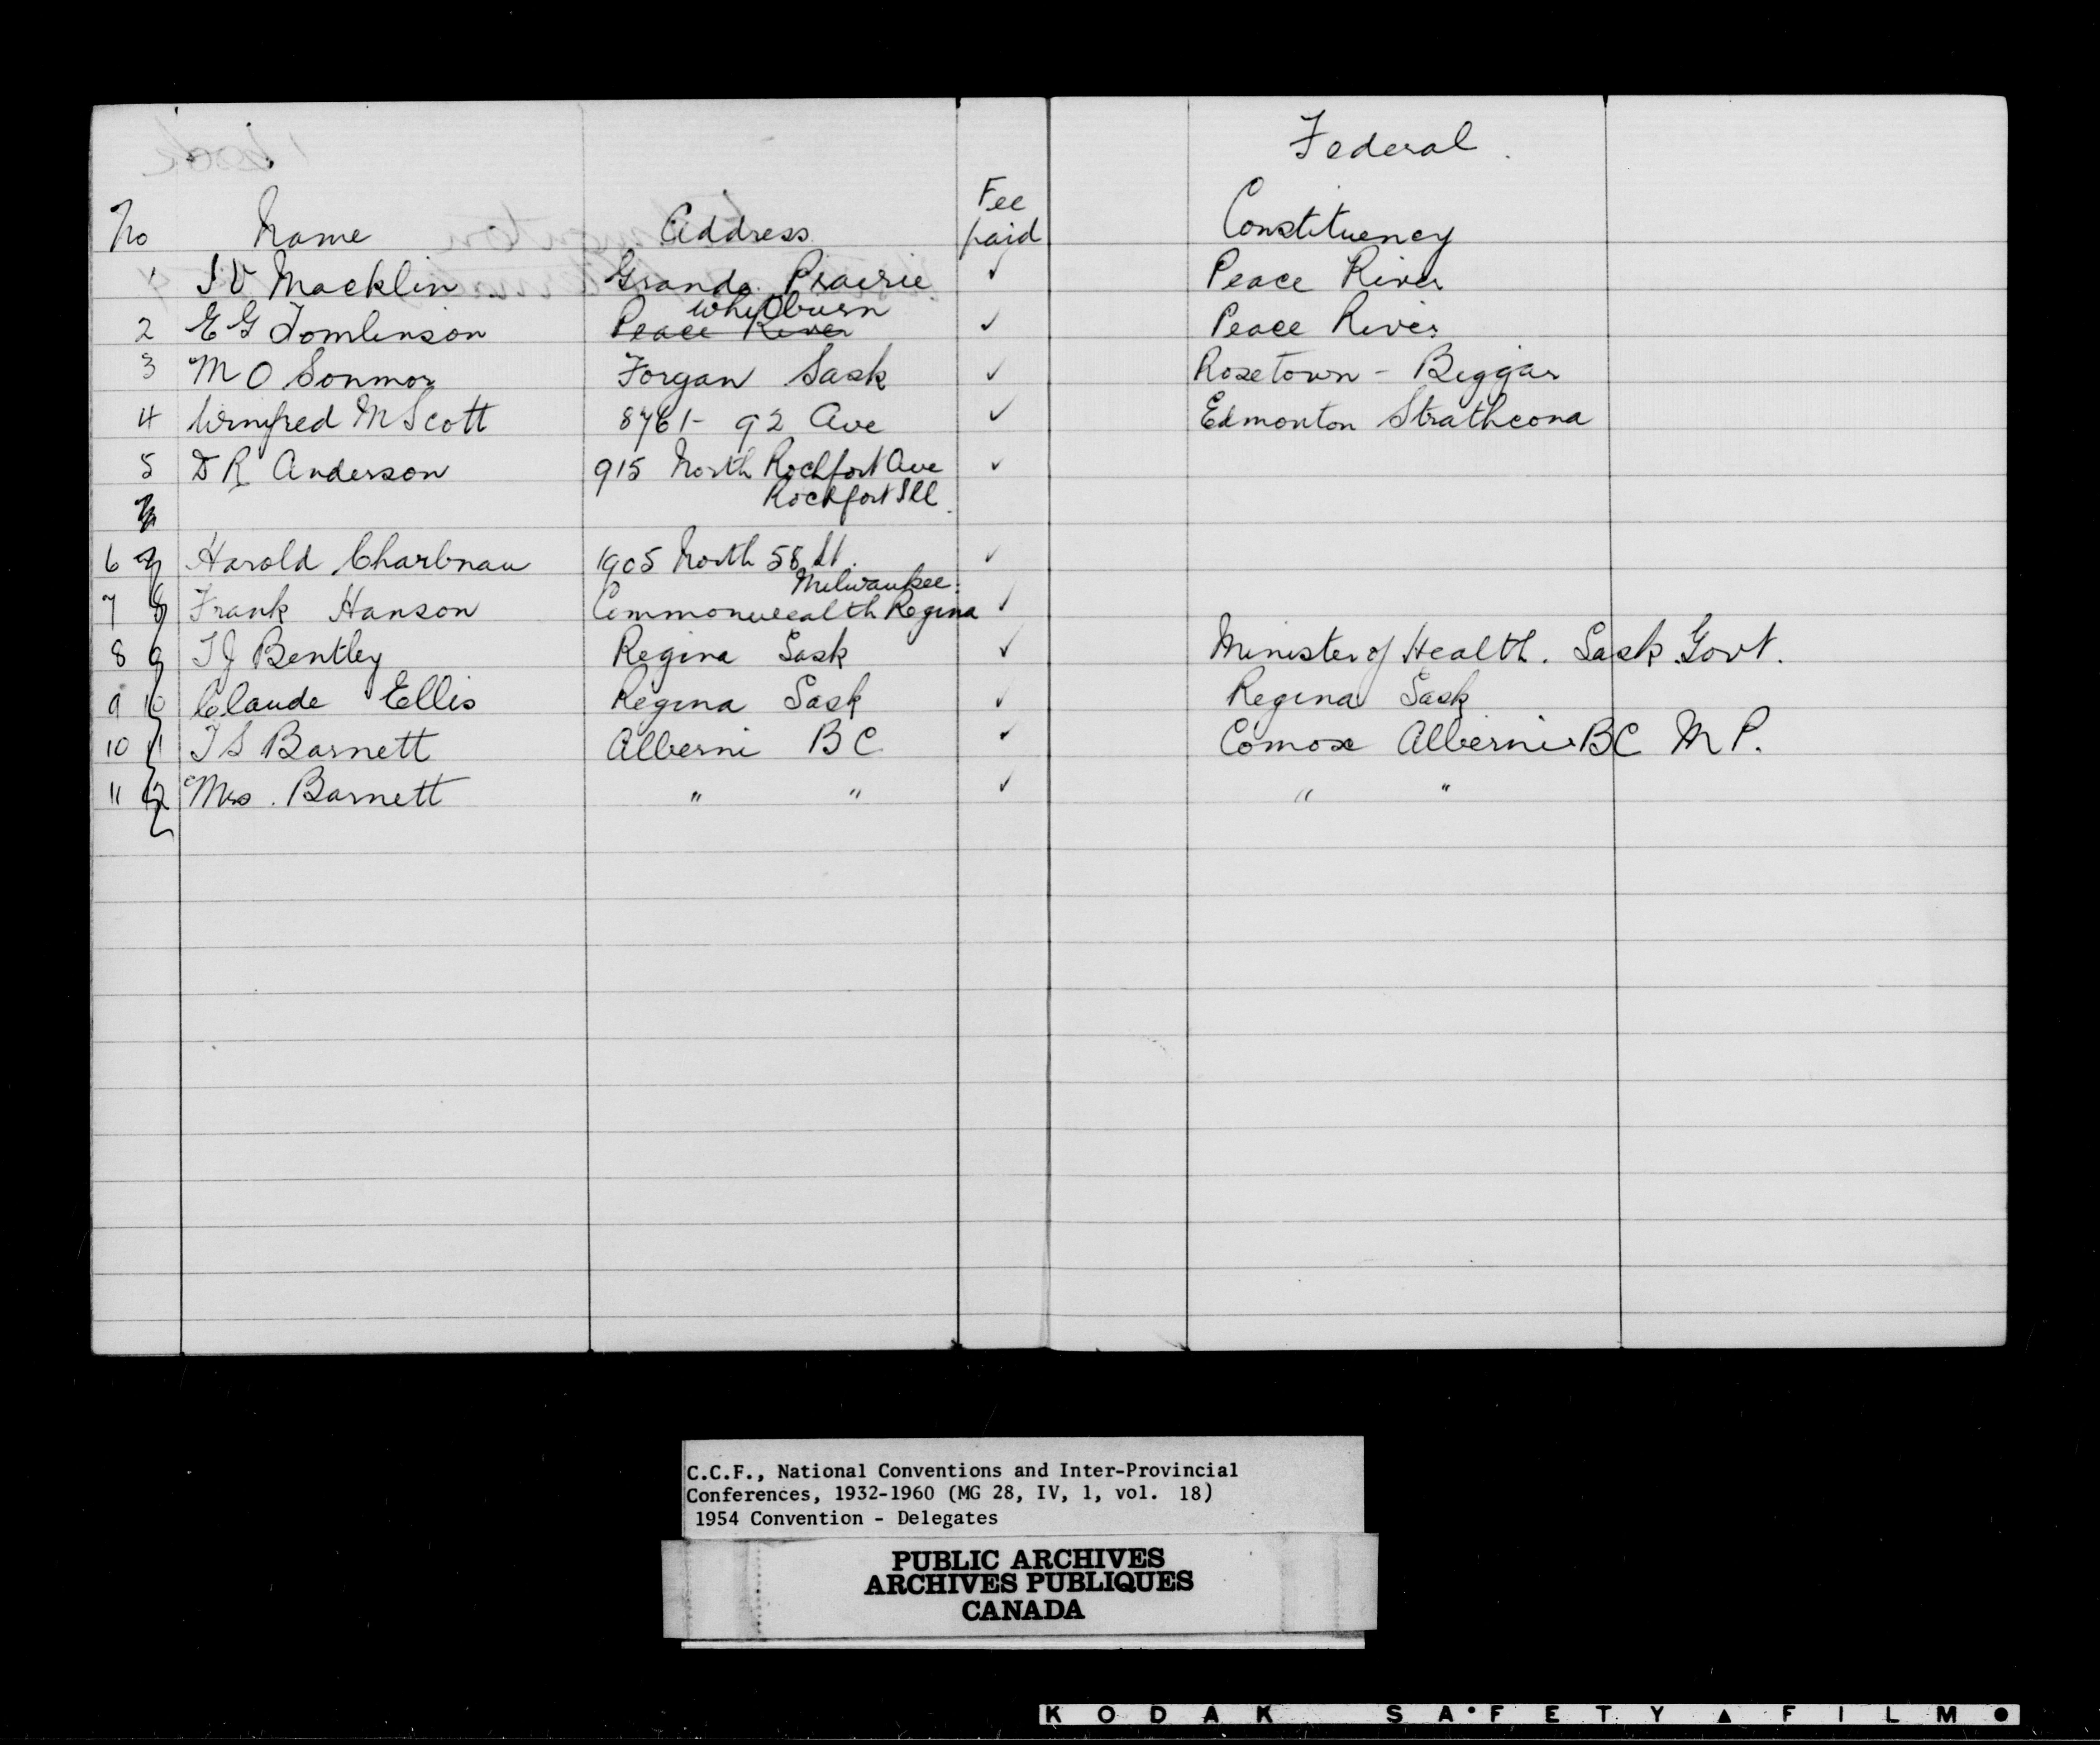 Federal.
No Name Address Fee paid Constituency
1 I V Macklin Grande Prairie ✓ Peace River
Whitburn
2 E G Tomlinson Peace River ✓ Peace River
3 M O Sonmor Forgan Sask ✓ Rosetown - Biggar
4 Winifred M Scott 8761- 92 Ave ✓ Edmonton Strathcona
5 D R Anderson 915 North Rochfort Ave ✓
Rockfort Ill.
6 Harold Charbnau 1905 North 58 St. ✓
Milwaukee.
7 8 Frank Hanson Commonwealth Regina ✓
8 9 T J Bentley Regina Sask ✓ Minister of Health. Sask. Govt.
9 10 Claude Ellis Regina Sask ✓ Regina Sask
10 11 T S Barnett Alberni B C ✓ Comox Alberni BC M P.
11 12 Mrs. Barnett " " ✓ " "
C.C.F., National Conventions and Inter-Provincial
Conferences, 1932-1960 (MG 28, IV, 1, vol. 18)
1954 Convention - Delegates
PUBLIC ARCHIVES
ARCHIVES PUBLIQUES
CANADA
KODAK SA•FETY ▲ FILM ●